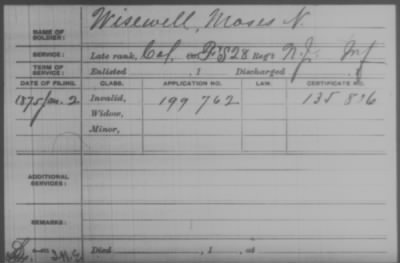 NAME OF SOLDIER: Wisewell, Moses N.
SERVICE: Late rank, Col, F&S 28 Reg't N.J. Inf
TERM OF SERVICE: Enlisted , 1 Discharged , 1
DATE OF FILING. CLASS. APPLICATION NO. LAW. CERTIFICATE NO.
1875 Jan. 2 Invalid, 199 762 135 816
Widow,
Minor,
ADDITIONAL SERVICES:
REMARKS:
Died , 1 , at